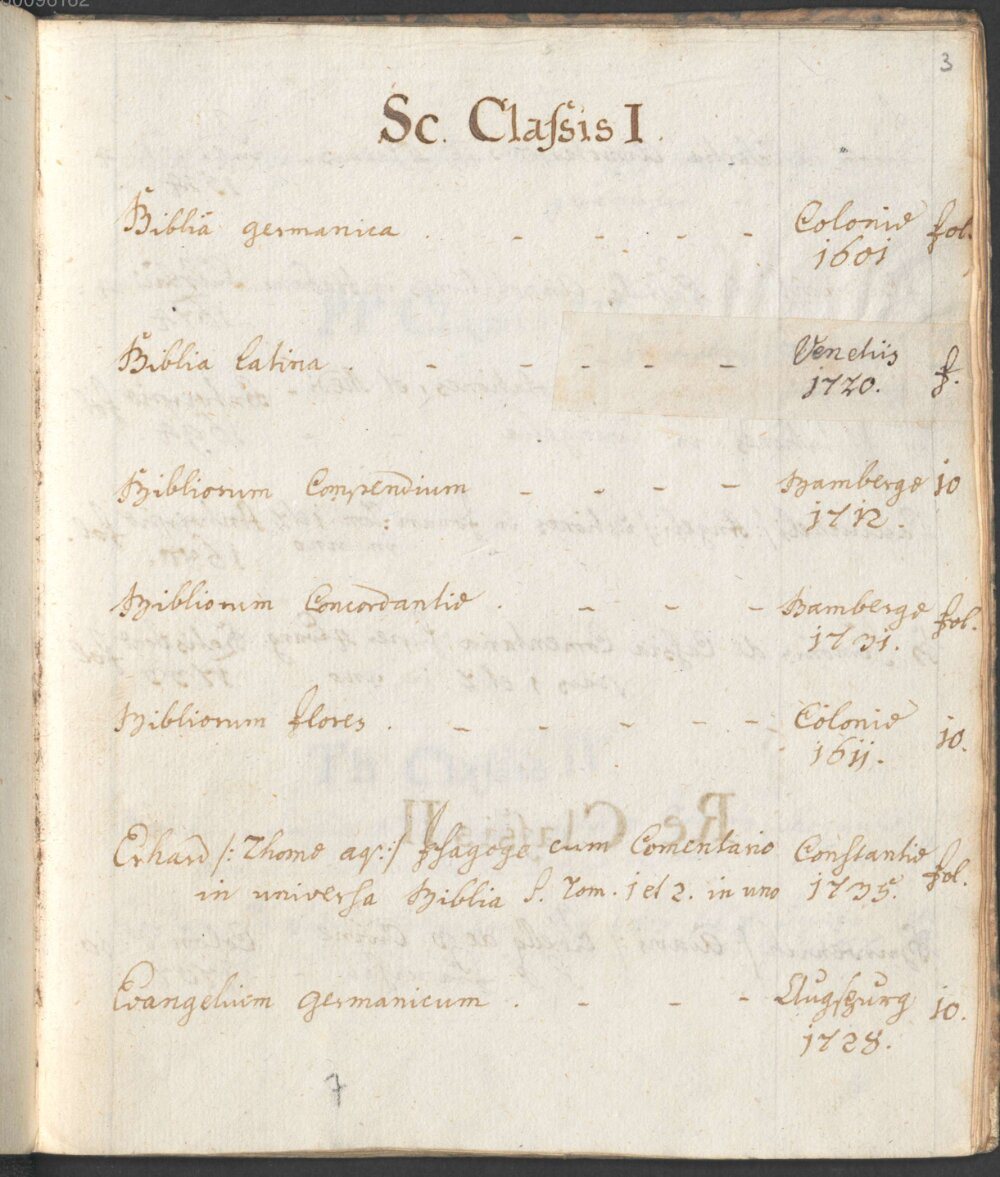 3
Sc. Classis I.
Biblia germanica . - - - - Coloniæ fol.
1601
Biblia latina . - - - - - Venetiis f.
1720.
Bibliorum Compendium - - - - Bambergæ 10
1712.
Bibliorum Concordantiæ . - - - Bambergæ fol.
1731.
Bibliorum flores . - - - - - Coloniæ 10.
1611.
Erhard /: Thomæ aq: / Isagoge cum Comentario Constantiæ fol.
in universa Biblia S. Tom. 1 et 2. in uno 1735.
Evangelium germanicum . - - - Augspurg 10.
1728.
7